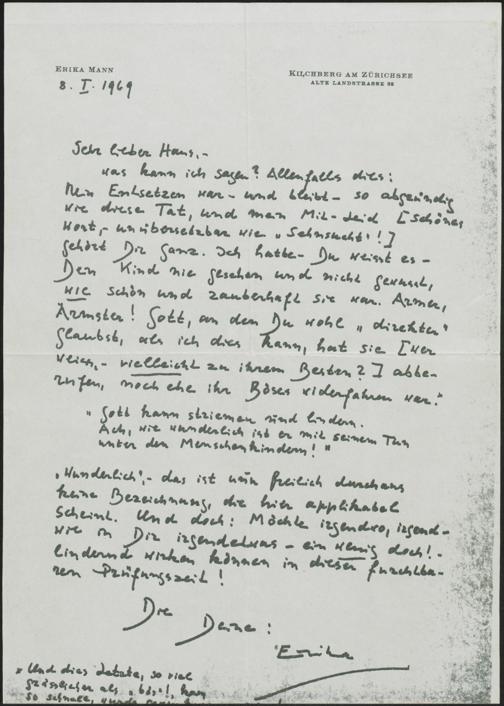 ERIKA MANN
KILCHBERG AM ZÜRICHSEE
ALTE LANDSTRASSE 39
8. I. 1969
Sehr lieber Hans,-
was kann ich sagen? Allenfalls dies:
Mein Entsetzen war - und bleibt - so abgründig
wie diese Tat, und mein Mit-Leid [schönes
Wort,- unübersetzbar wie „Sehnsucht"!]
gehört Dir ganz. Ich hatte - Du weisst es -
Dein Kind nie gesehen und nicht gewusst,
wie schön und zauberhaft sie war. Armer,
Ärmster! Gott, an den Du wohl „direkter"
glaubst, als ich dies kann, hat sie [wer
weiss,- vielleicht zu ihrem Besten?] abbe-
rufen, noch ehe ihr Böses widerfahren war."
„Gott kann striemen und lindern.
Ach, wie wunderlich ist er mit seinem Tun
unter den Menschenkindern!"
„Wunderlich",- das ist nun freilich durchaus
keine Bezeichnung, die hier applikabel
scheint. Und doch: Möchte irgendwo, irgend-
wie in Dir irgendetwas - ein wenig doch! -
lindernd wirken können in dieser furchtba-
ren Prüfungszeit!
Die
Deine:
Erika
" Und dies Letzte, so viel
grässlicher als „bös"!, kam
so schnell, wurde